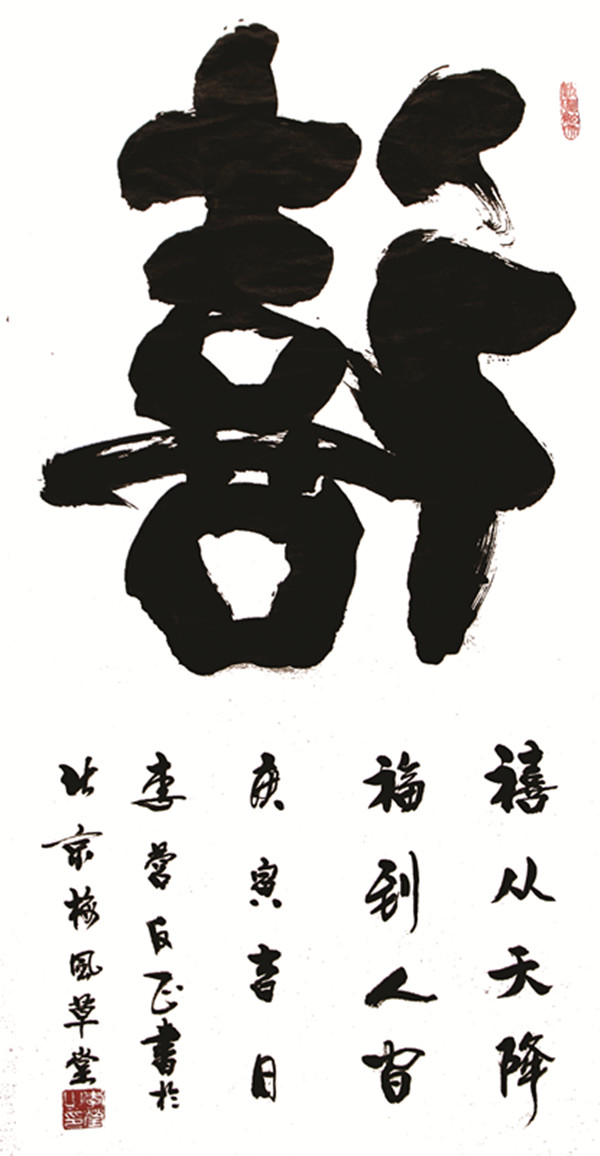 禧
禧从天降
福到人间
庚寅吉日
李营反正書於
北京梅風草堂